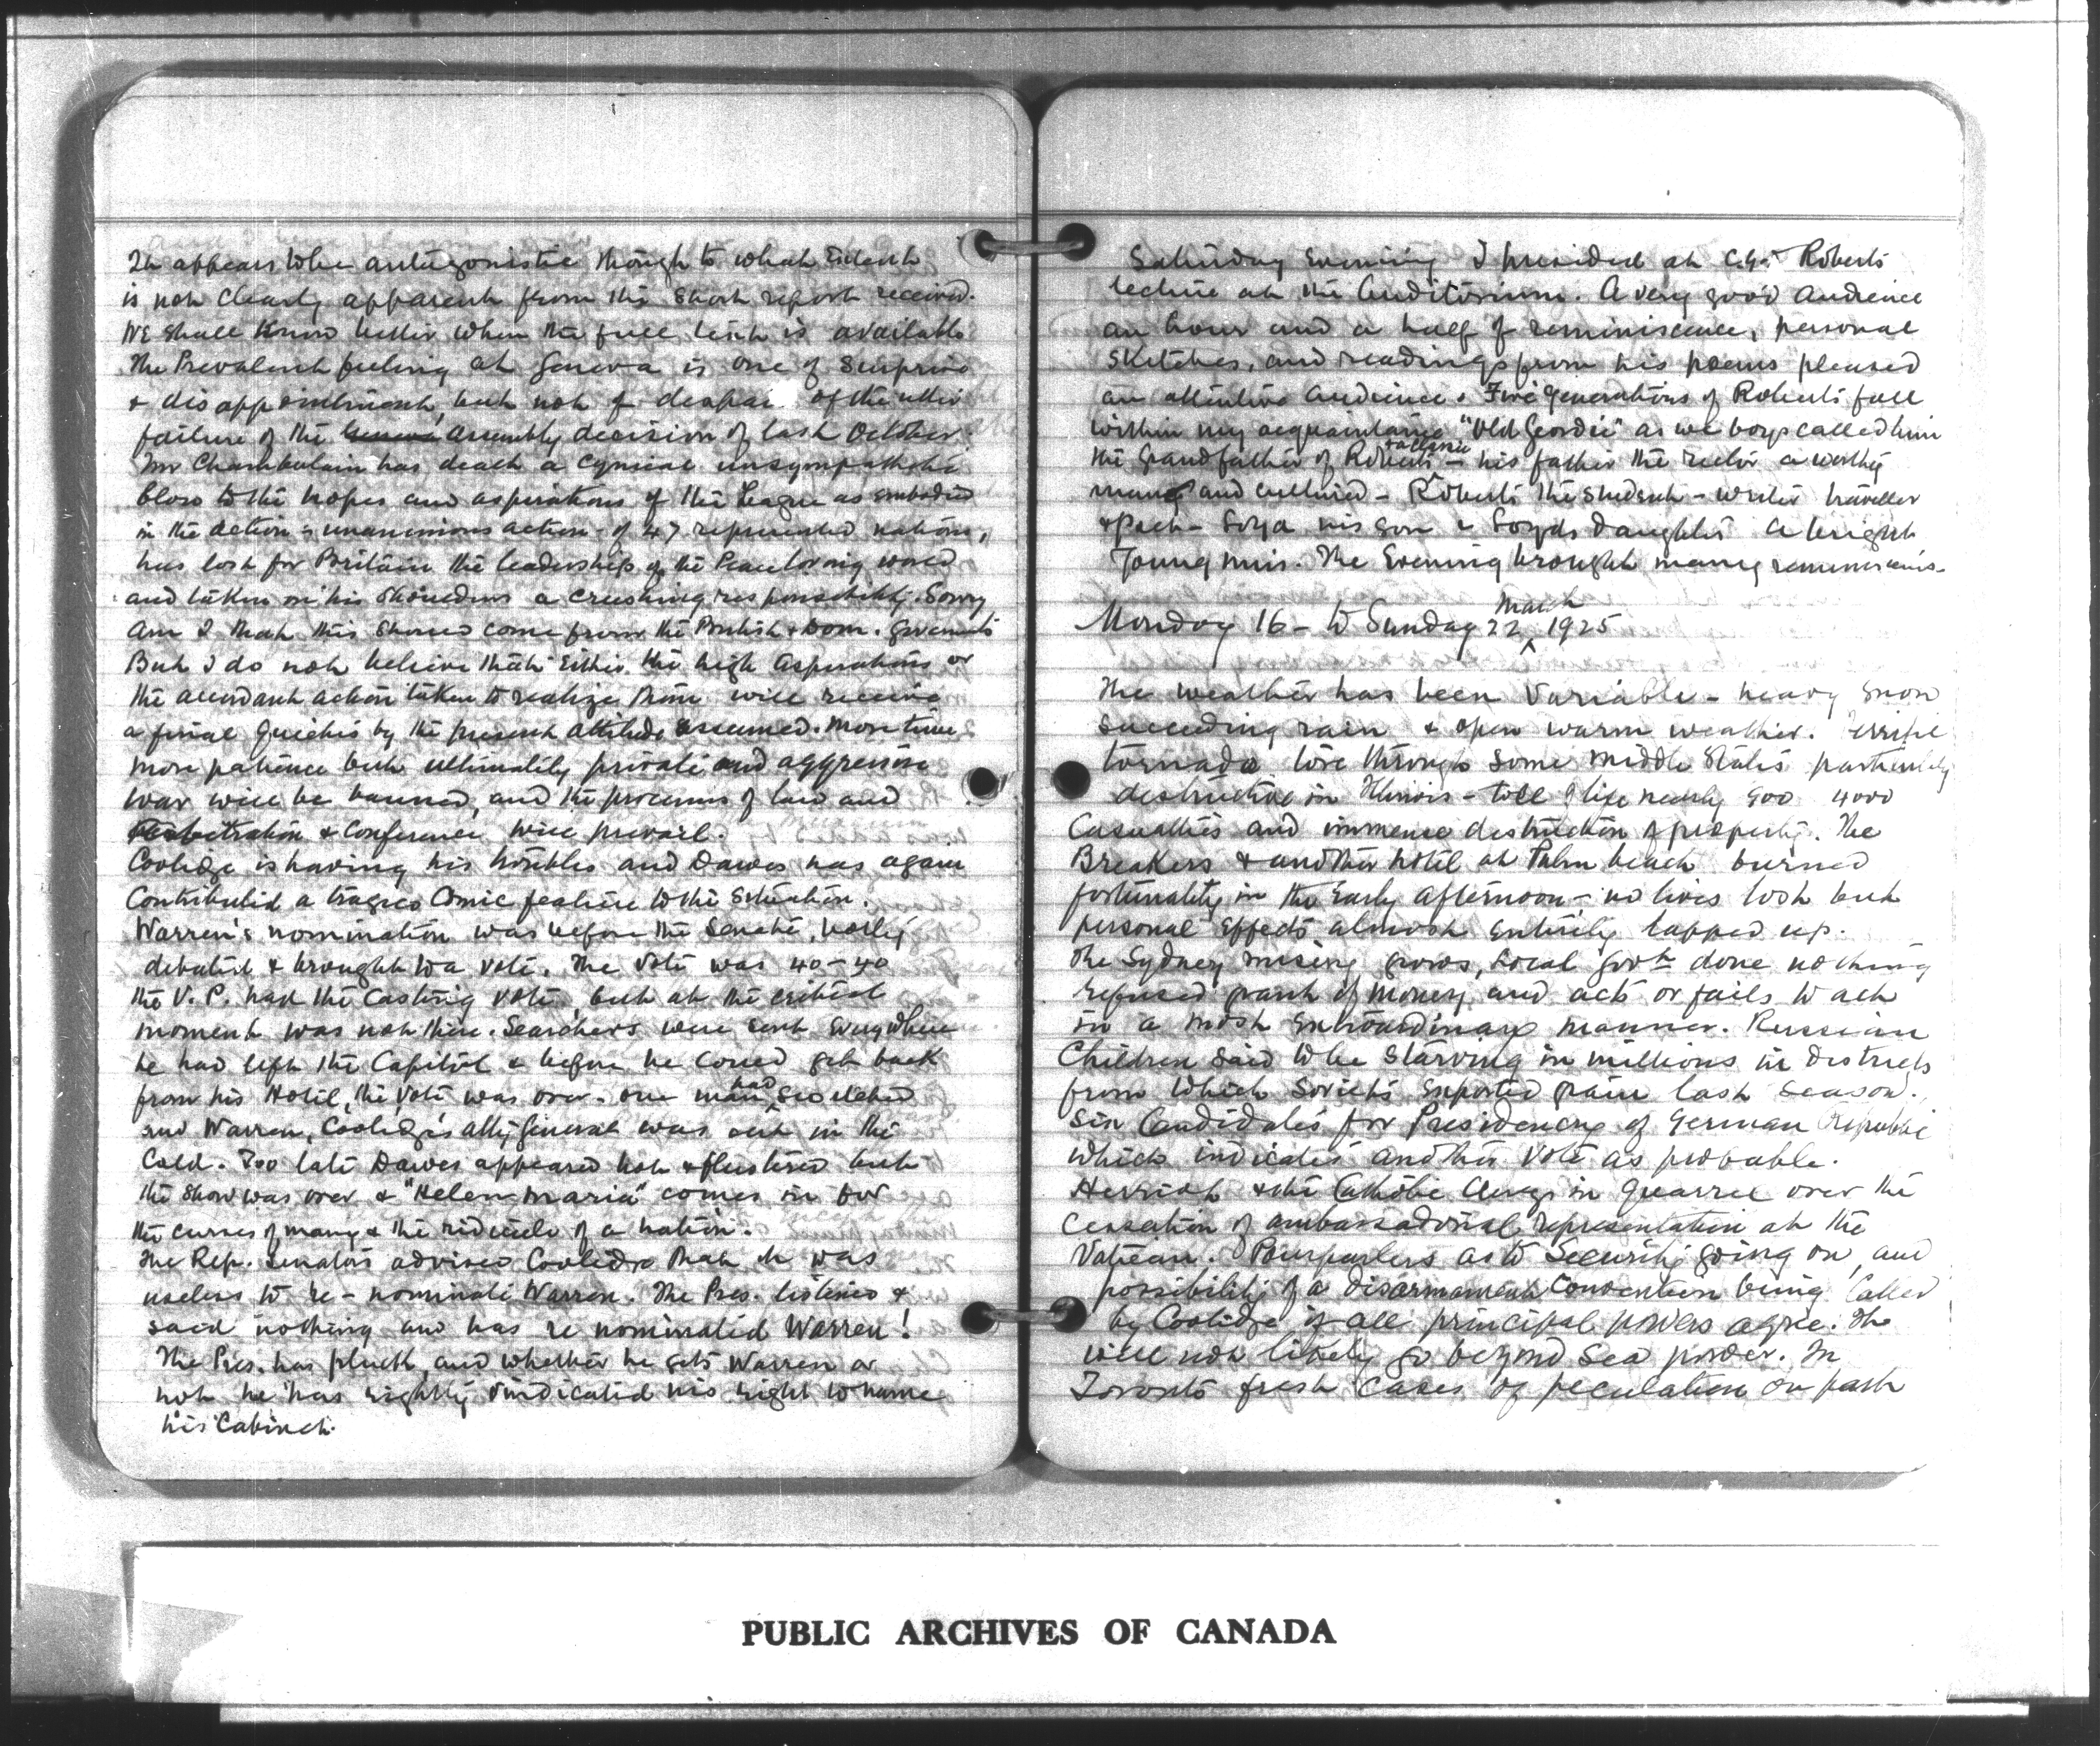 It appears to be antagonistic though to what extent
is not clearly apparent from the short report received.
We shall know better when the full text is available
The Prevalent feeling at Geneva is one of Surprise
& disappointment, but not of despair of the utter
failure of the Geneva Assembly decision of last October.
Mr Chamberlain has dealt a cynical unsympathetic
blow to the hopes and aspirations of the League as embodied
in the action & unanimous action of 47 represented nations,
has lost for Britain the leadership of the Peace loving world
and taken on his shoulders a crushing responsibility. Sorry
am I that this should come from the British & Dom. Governments
But I do not believe that either the high aspirations or
the attendant action taken to realize them will receive
a final quietus by the present attitude assumed. More time
more patience but ultimately private and aggressive
war will be banned, and the processes of law and
arbitration & Conference will prevail.
Coolidge is having his troubles and Dawes has again
Contributed a tragico Comic feature to the situation.
Warren's nomination was before the Senate, hotly
debated & brought to a vote. The vote was 40-40
the V. P. had the Casting vote, but at the critical
moment was not there. Searchers were sent everywhere
he had left the Capitol & before he could get back
from his Hotel, the vote was over. One man had switched
and Warren, Coolidge's atty General was out in the
Cold. Too late Dawes appeared hot & flustered but
the show was over & "Helen Maria" comes in for
the curses of many & the ridicule of a nation.
The Rep. Senators advised Coolidge that it was
useless to re-nominate Warren. The Pres. listened &
said nothing and has re nominated Warren!
The Pres. has pluck, and whether he gets Warren or
not he has rightly vindicated his right to name
his Cabinet.
Saturday Evening I presided at C.G.D. Roberts
lecture at the Auditorium. A very good audience
an hour and a half of reminiscence, personal
sketches, and readings from his poems pleased
an attentive audience. Five generations of Roberts fall
within my acquaintance "Old Geordie" as we boys called him
the grandfather of Roberts - his father the rector a worthy
man and cultured - Roberts the student - writer traveller
& Poet - Loyd his son & Loyds daughter a bright
Young miss. The Evening brought many reminiscences.
Monday 16 - to Sunday 22 March 1925
The weather has been Variable - heavy snow
succeeding rain & open warm weather. Terrific
tornado tore through some Middle States particularly
destructive in Illinois - toll of life nearly 900 4000
Casualties and immense destruction of property. The
Breakers & another hotel at Palm beach burned
fortunately in the early afternoon - no lives lost but
personal effects almost entirely lapped up.
The Sydney misery grows, Local Govt done nothing
refused grant of money and acts or fails to act
in a most extraordinary manner. Russian
Children said to be starving in millions in districts
from which Soviets exported grain last season.
Six Candidates for Presidency of German Republic
which indicates another vote as probable.
Herriot & the Catholic Clergy in quarrel over the
Cessation of ambassadorial representation at the
Vatican. Pourparlers as to Security going on, and
possibility of a disarmament Convention being Called
by Coolidge if all principal powers agree. The
will not likely go beyond Sea power. In
Toronto fresh cases of peculation on part
PUBLIC ARCHIVES OF CANADA